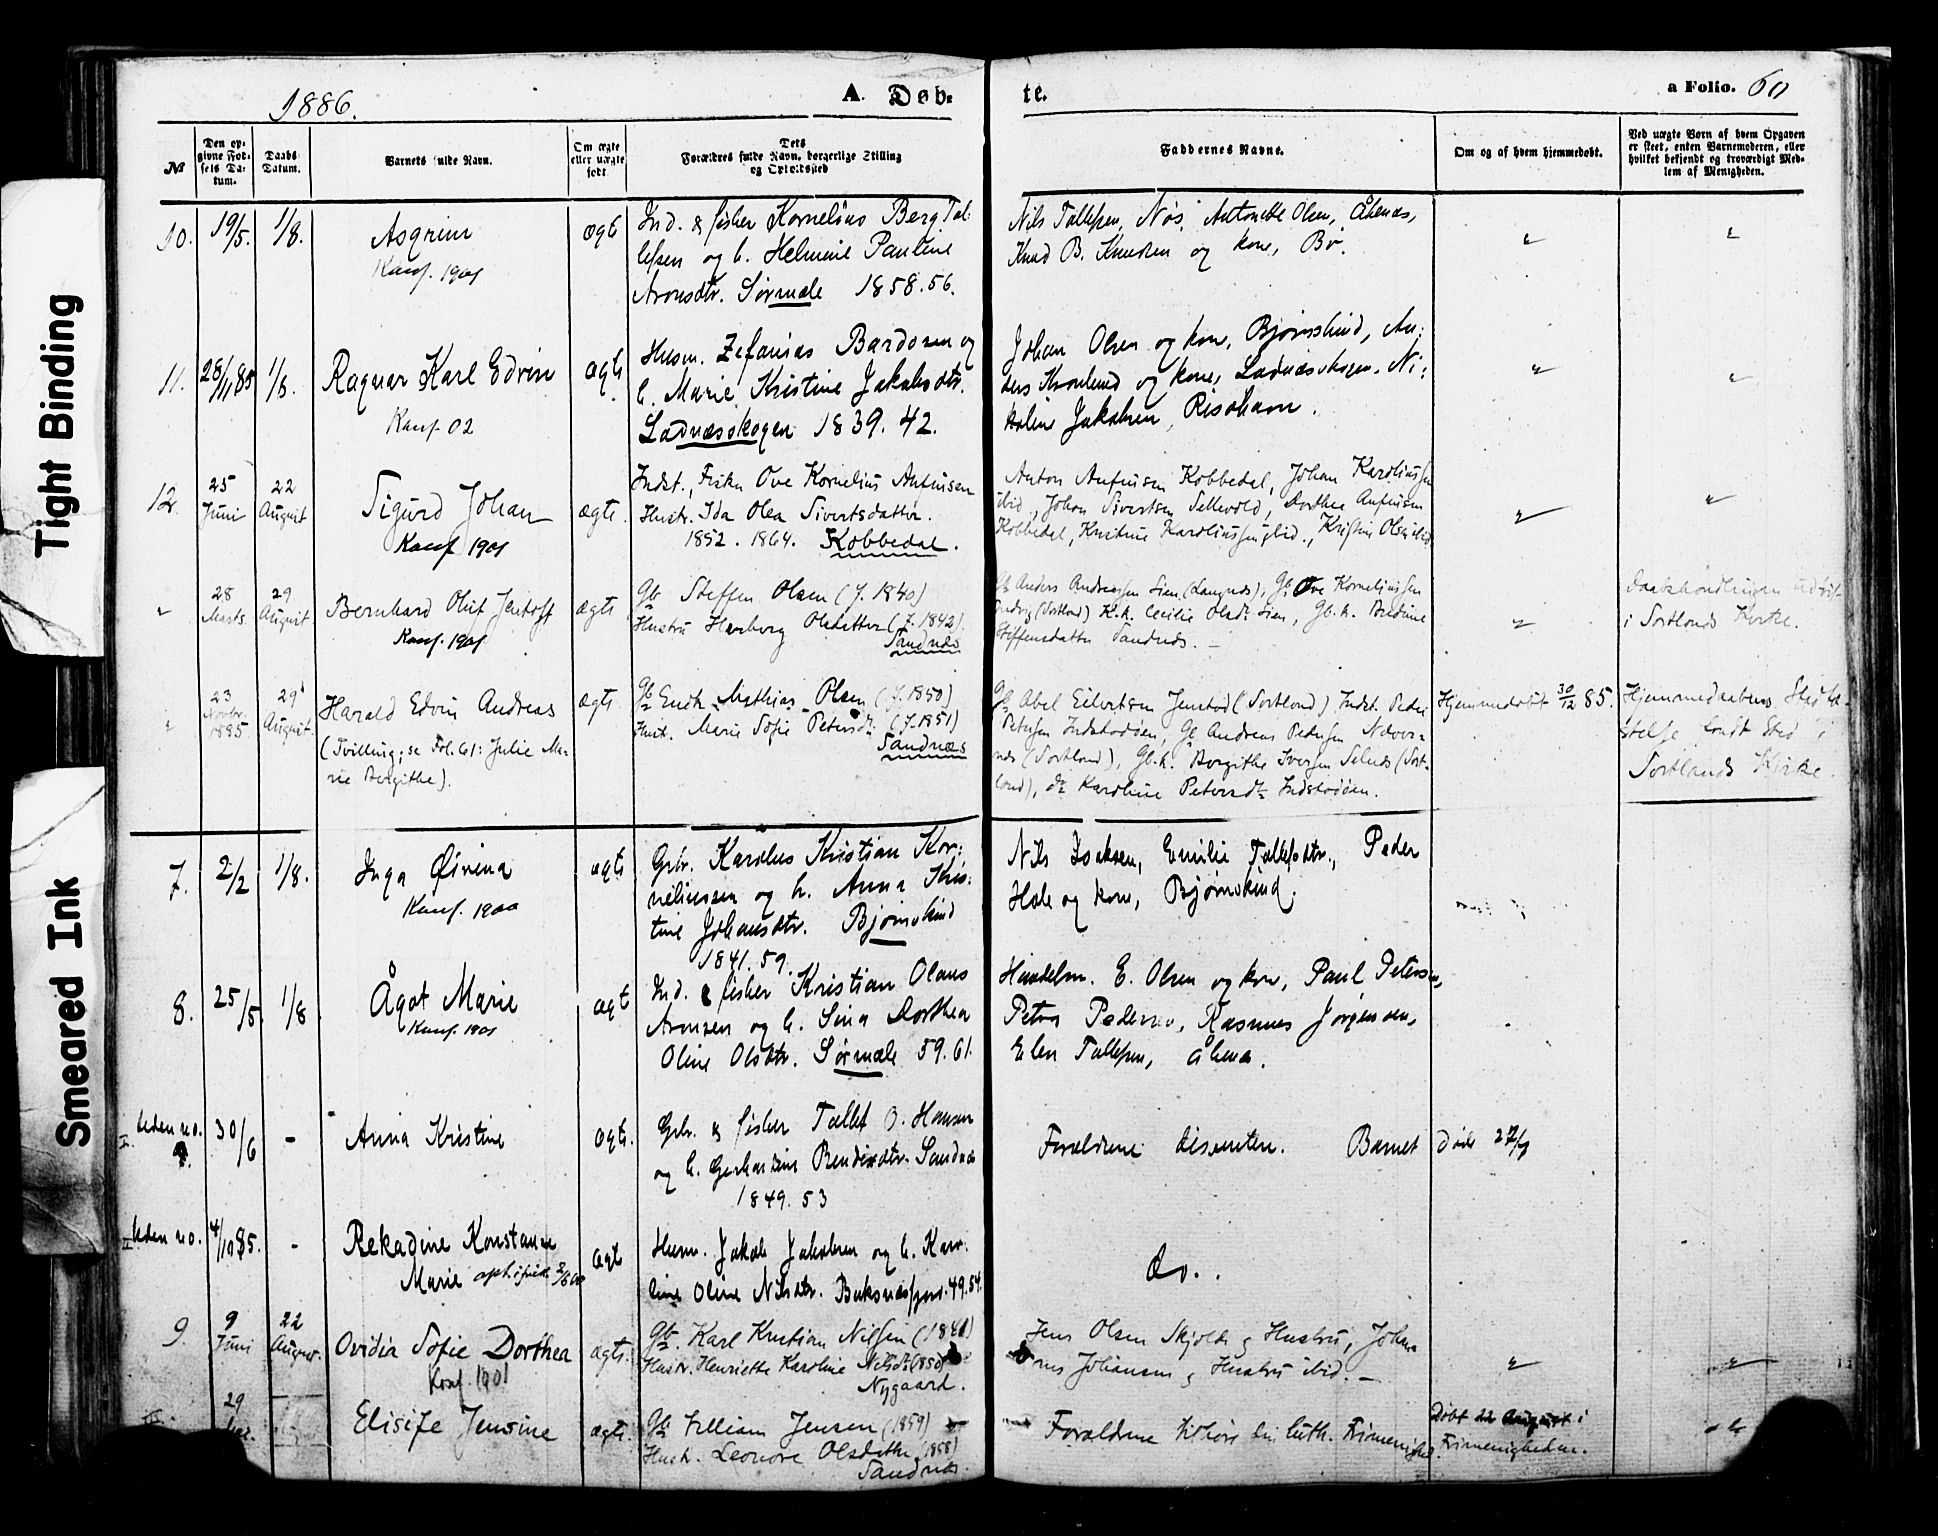 1886.
A. Døb-
te.
a Folio. 60
№
Den op-
givne Fød-
sels Da-
tum.
Daabs
Datum.
Barnets fulde Navn.
Om ægte
eller uægte
født
Dets
Forældres fulde Navn, borgerlige Stilling
og Opholdssted
Faddernes Navne.
Om og af hvem hjemmedøbt.
Ved uægte Børn af hvem Opgaven
er skeet, enten Barnemoderen, eller
hvilket bekjendt og troværdigt Med-
lem af Menigheden.
10. 19/5. 1/8. Asgrim ægte Ind. & fisker Kornelius Berg Tol-
Konf. 1901
lefsen og h. Helmine Pauline
Aronsdtr. Sørmæle 1858. 56.
Nils Tollefsen, Nøs, Antonette Olsen, Åhenæs,
Knud B. Knudsen og kone, Bø.
11. 28/11 85 1/8. Ragnar Karl Edvin ægte Husm. Zefanias Bardosen og
Konf. 02
h. Marie Kristine Jakobsdtr.
Ladnæsskogen 1839. 42.
Johan Olsen og kone, Bjørnskind, An-
ders Kronlund og kone, Ladnæsskogen, Ni-
koline Jakobsen, Risøhavn.
12. 25 Juni 22 August Sigurd Johan ægte. Indst., Fisker Ove Kornelius Anfinsen
Konf 1901
Hustr. Ida Olea Sivertsdatter.
1852. 1864. Kobbedal.
Anton Anfinsen Kobbedal, Johan Karoliussen
ibid., Johan Sivertsen Sellevold, Dorthea Anfinsen
Kobbedal, Kristine Karoliussen ibid., Kristine Olsen ibid.
" 28 Marts 29 August Bernhard Oluf Jentoft ægte Gb. Steffen Olsen (f. 1840)
Konf. 1901
Hustru Herborg Olsdatter (f. 1842).
Sandnæs
Gb. Anders Andreassen Lien (Langnes), Gb. Ove Korneliussen
(Sortland) K.k. Cecilie Olsdtr Lien, Gb.k.
Steffensdatter Sandnæs. —
Daabshandlingen udført
i Sortlands Kirke.
" 23 Novbr. 1885 29 August. Harald Edvin Andreas ægte Gb. Mathias Olsen (f. 1850)
(Tvilling; se Fol. 61: Julie Ma-
rie Bergithe).
Hust. Marie Sofie Petersdtr. (f. 1851)
Sandnæs
Gb. Abel Eilertsen Jennstad (Sortland) Indst. Peder
Petersen, Gb Andreas Pedersen
(Sortland), Gb.k. Bergithe Iversen Selnes (Sort-
land), do Karoline Petersdtr
Hjemmedøbt 30/12 85.
Hjemmedaabens Stadfæ-
stelse fandt Sted i
Sortlands Kirke.
7. 2/2 1/8. Inga Øivina ægte Gbr. Karolius Kristian Kor-
Konf. 1900
neliussen og h. Anna Kris-
tine Johansdtr. Bjørnskind
1841. 59.
Nils Isaksen, Emilie Tollefsdtr., Peder
Hole og kone, Bjørnskind.
8. 25/5. 1/8 Ågot Marie ægte Ind. & fisker Kristian Olaus
Konf. 1901
Aronsen og h. Sina Dorthea
Oline Olsdtr. Sørmæle 59. 61.
Handelsm. E. Olsen og kone, Paul Petersen,
Petra Pedersen, Rasmus Jørgensen,
Elen Tollefsen, Åhenæs.
I. Uden no. 30/6 - Anna Kristine ægte. Gbr. & fisker Tollef O. Hansen
og h. Gerhardine Bendixdtr. Sandnæs
1849. 53
Forældrene dissentere. Barnet døde 27/9
II. Uden no. 4/10 85. - Rekadine Konstanse ægte Husm. Jakob Jakobsen og h. Karo-
Marie
line Oline Nilsdtr. Buksnæsfjord. 49. 54.
Do.
9. 9 Juni 22 August. Ovidia Sofie Dorthea ægte. Gb. Karl Kristian Nilsen (1840)
Konf. 1901
Hustr. Henriette Karoline Nilsdtr (1850)
Nygaard.
Jens Olsen Skjold & Hustru, Johan
Johansen & Hustru ibid. —
III. 29 Elisife Jensine ægte. Gb. William Jensen (1859)
Hustr. Leonore Olsdatter (1858)
Sandnæs.
Forældrene tilhøre den luth. Frimenighed.
Døbt 22 August i
Frimenigheden.
Tight Binding
Smeared Ink